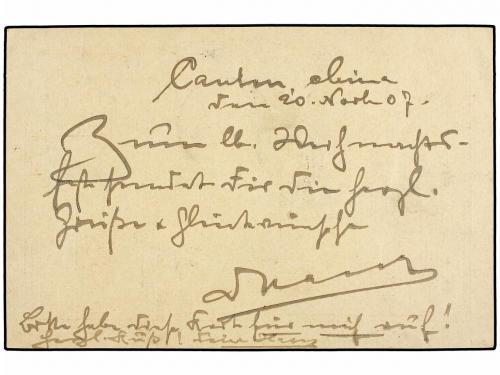 Canton, China
den 20. Novb 07.
Zum lb. Weihnachts-
fest sendet Dir die herzl.
Grüße & Glückwünsche
Bitte hebe diese Karte für mich auf!
herzl. Kuß! Dein